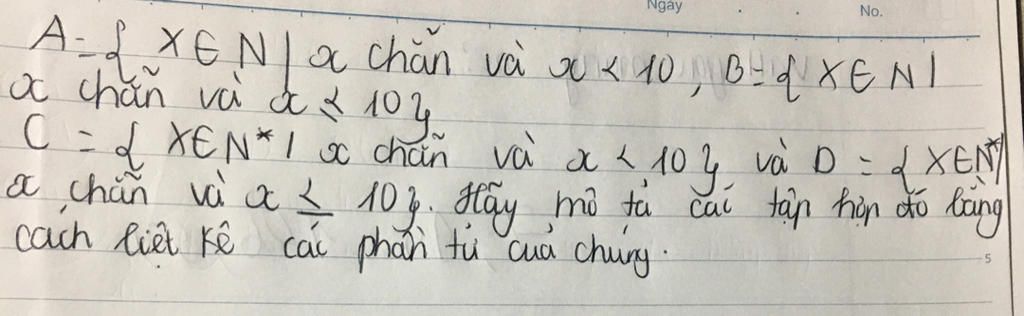 Ngày . . No.
A = { X ∈ N | x chẵn và x < 10 , B = { X ∈ N |
x chẵn và x < 10 }
C = { X ∈ N* | x chẵn và x < 10 } và D = { X ∈ N* |
x chẵn và x ≤ 10 }. Hãy mô tả các tập hợp đó bằng
cách liệt kê các phần tử của chúng.
5